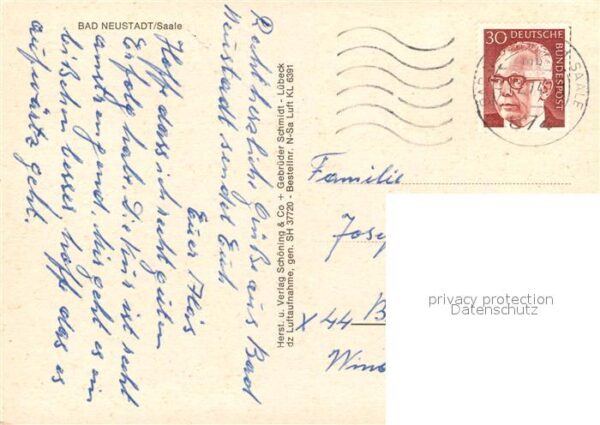 BAD NEUSTADT/Saale
Recht herzliche Grüße aus Bad
Neustadt sendet Euch
Euer Alois
Hoffe dass ich recht guten
Erfolg hab. Die Kur ist recht
anstrengend. Mir geht es ein
bißchen besser, hoff das es
aufwärts geht.
Herst. u. Verlag Schöning & Co + Gebrüder Schmidt - Lübeck
dz Luftaufnahme, gen. SH 37720 - Bestellnr. N-Sa Luft KL 6391
30 DEUTSCHE
BUNDESPOST
SAALE
74
874
Familie
Josep
X 44 B
Wind
privacy protection
Datenschutz